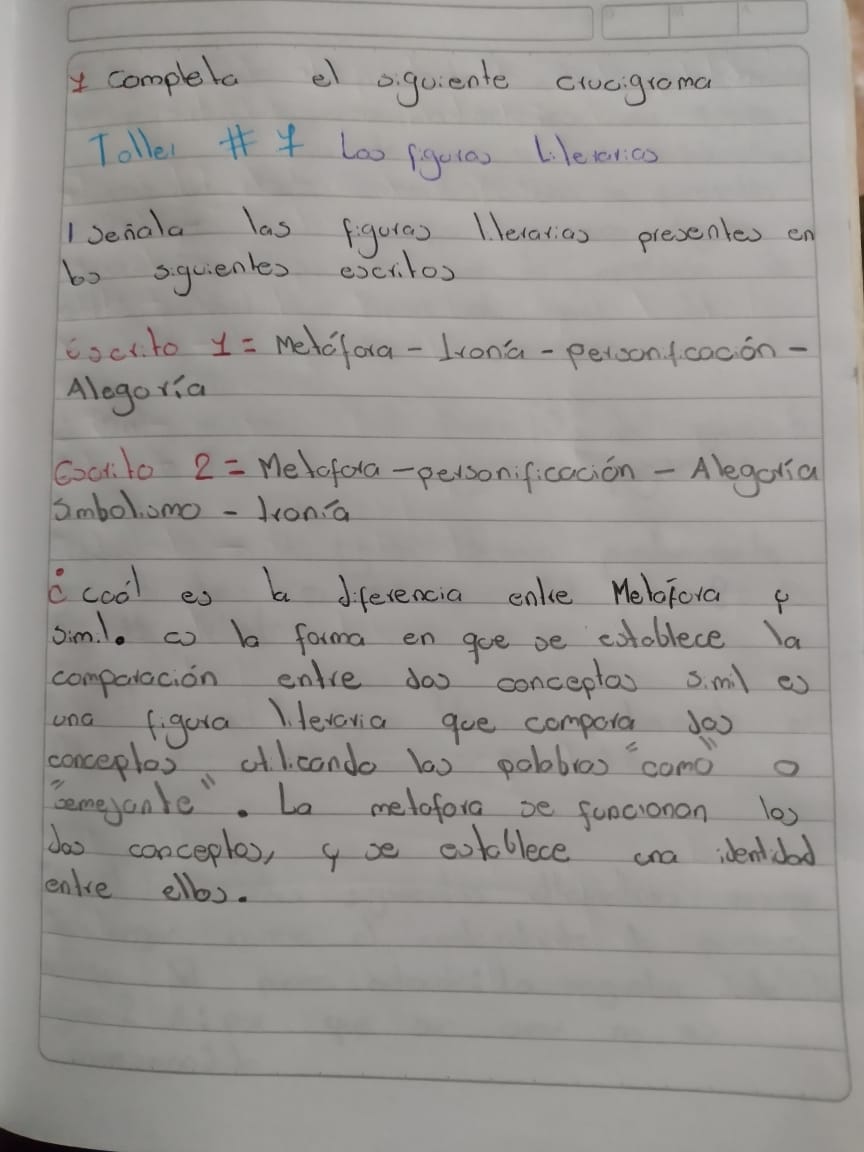 1 Completa el siguiente crucigrama
Taller # 1 Las figuras Literarias
1 señala las figuras llerarias presentes en
los siguientes escritos
Escrito 1 = Metáfora - Ironía - personificación -
Alegoría
Escrito 2 = Metafora - personificación - Alegoría
Simbolismo - Ironía
¿ cual es la diferencia entre Metafora y
simil. es la forma en que se establece la
comparación entre dos conceptos simil es
una figura literaria que compara dos
conceptos utilicando las palabras "como" o
"semejante". La metafora se funcionan los
dos conceptos, y se establece una identidad
entre ellos.